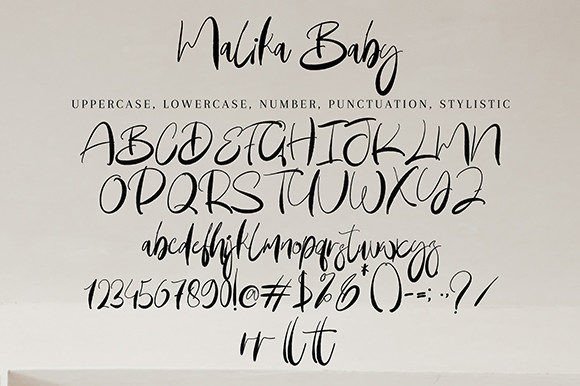 Malika Baby
UPPERCASE, LOWERCASE, NUMBER, PUNCTUATION, STYLISTIC
ABCDEFGHIJKLMN
OPQRSTUVWXYZ
abcdefhjklmnopqrstuvwxyz
1234567890!@#$%&*()-=;.,?/
rr ll tt